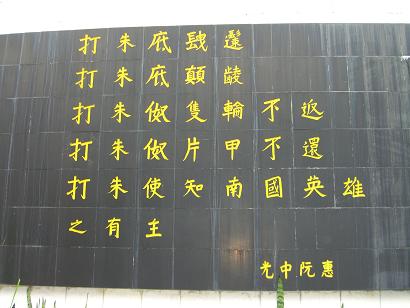 打朱底𨱽𩯀
打朱底顛𪘵
打朱伮隻輪不返
打朱伮片甲不還
打朱使知南國英雄
之有主
光中阮惠